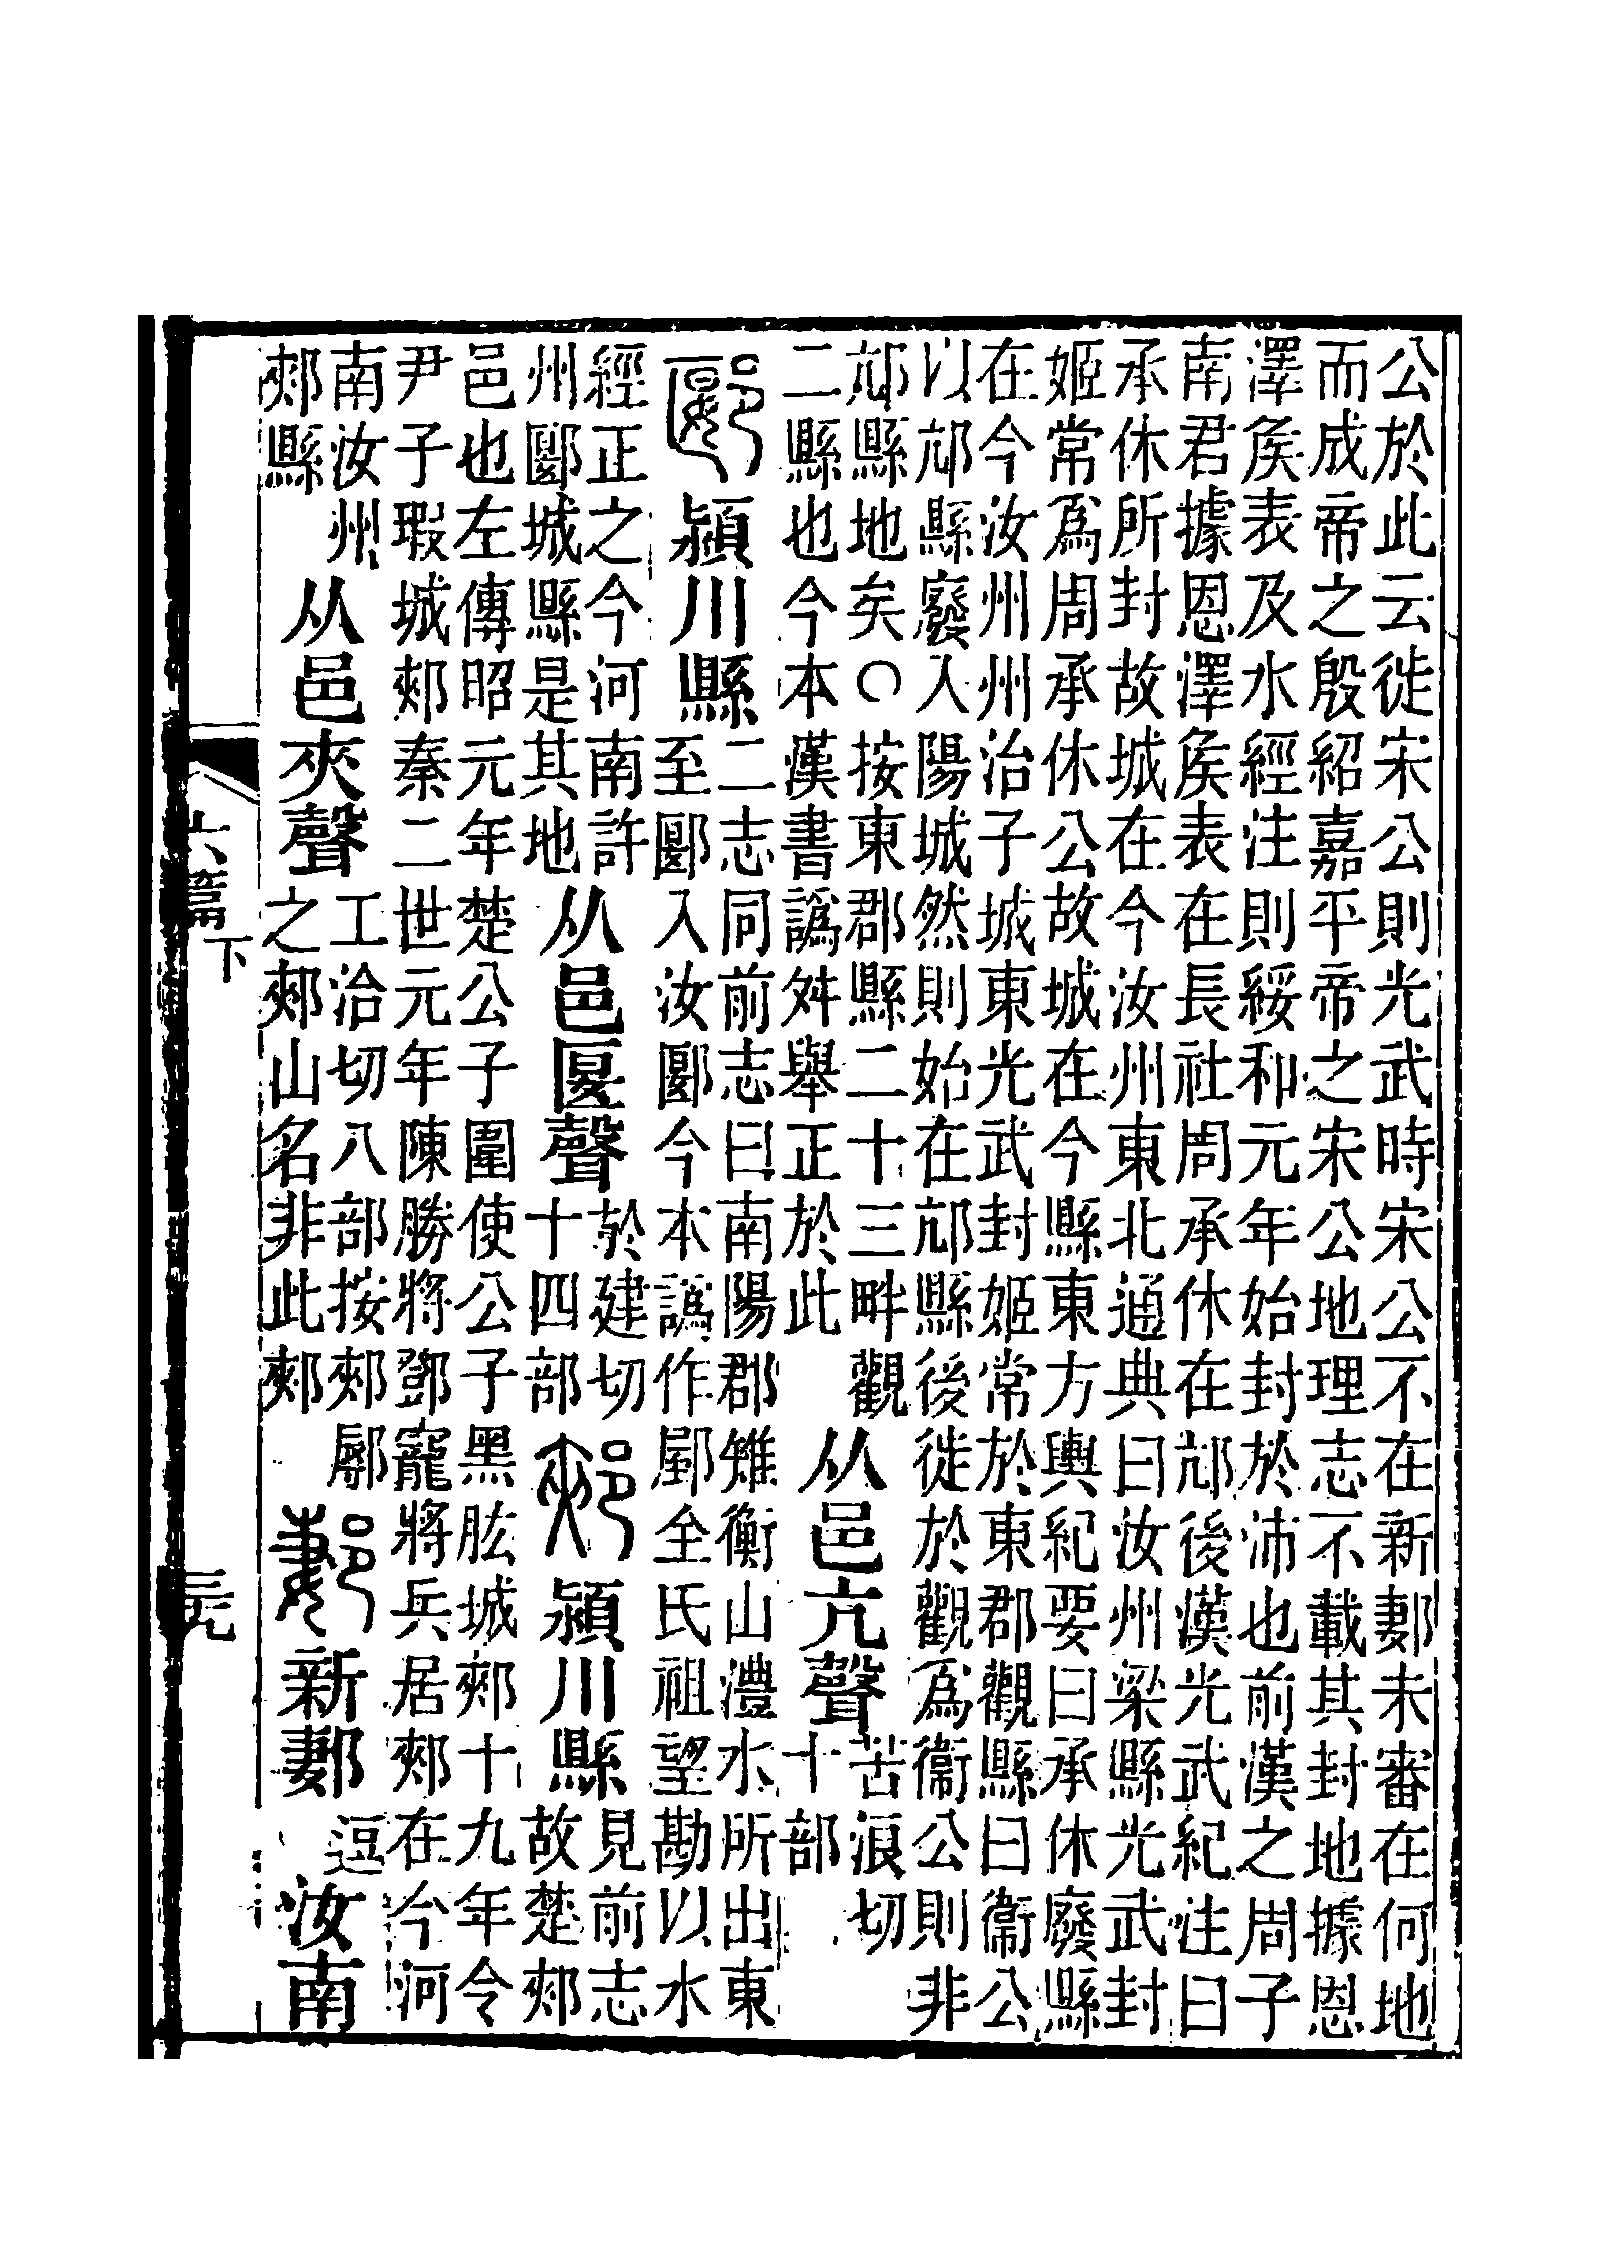 公於此云徙宋公則光武時宋公不在新郪未審在何地
而成帝之殷紹嘉平帝之宋公地理志不載其封地據恩
澤矦表及水經注則綏和元年始封於沛也前漢之周子
南君據恩澤矦表在長社周承休在邟後漢光武紀注曰
承休所封故城在今汝州東北通典曰汝州梁縣光武封
姬常爲周承休公故城在今縣東方輿紀要曰承休廢縣
在今汝州州治子城東光武封姬常於東郡觀縣曰衞公
以邟縣廢入陽城然則始在邟縣後徙於觀爲衞公則非
邟縣地矣〇按東郡縣二十三畔觀
二縣也今本漢書譌舛舉正於此
从邑亢聲
苦浪切
十部
郾
潁川縣
二志同前志曰南陽郡雉衡山澧水所出東
至郾入汝郾今本譌作郾全氏祖望勘以水
經正之今河南許
州郾城縣是其地
从邑匽聲
於建切
十四部
郟
潁川縣
見前志
故楚郟
邑也左傳昭元年楚公子圍使公子黑肱城郟十九年令
尹子瑕城郟秦二世元年陳勝將鄧寵將兵居郟在今河
南汝州
郟縣
从邑夾聲
工洽切八部按郟鄏
之郟山名非此郟
郪
新郪
逗
汝南
六篇下
𠀤